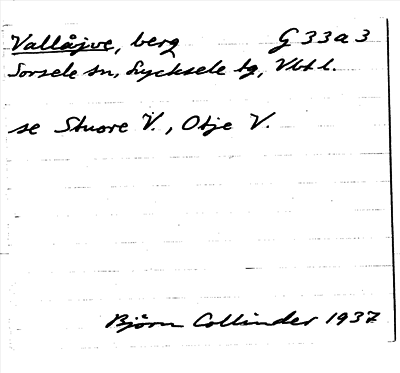 Vallåjve, berg G 33 a 3
Sorsele sn, Lycksele tg, Vbtl.
se Stuore V., Otje V.
Björn Collinder 1937